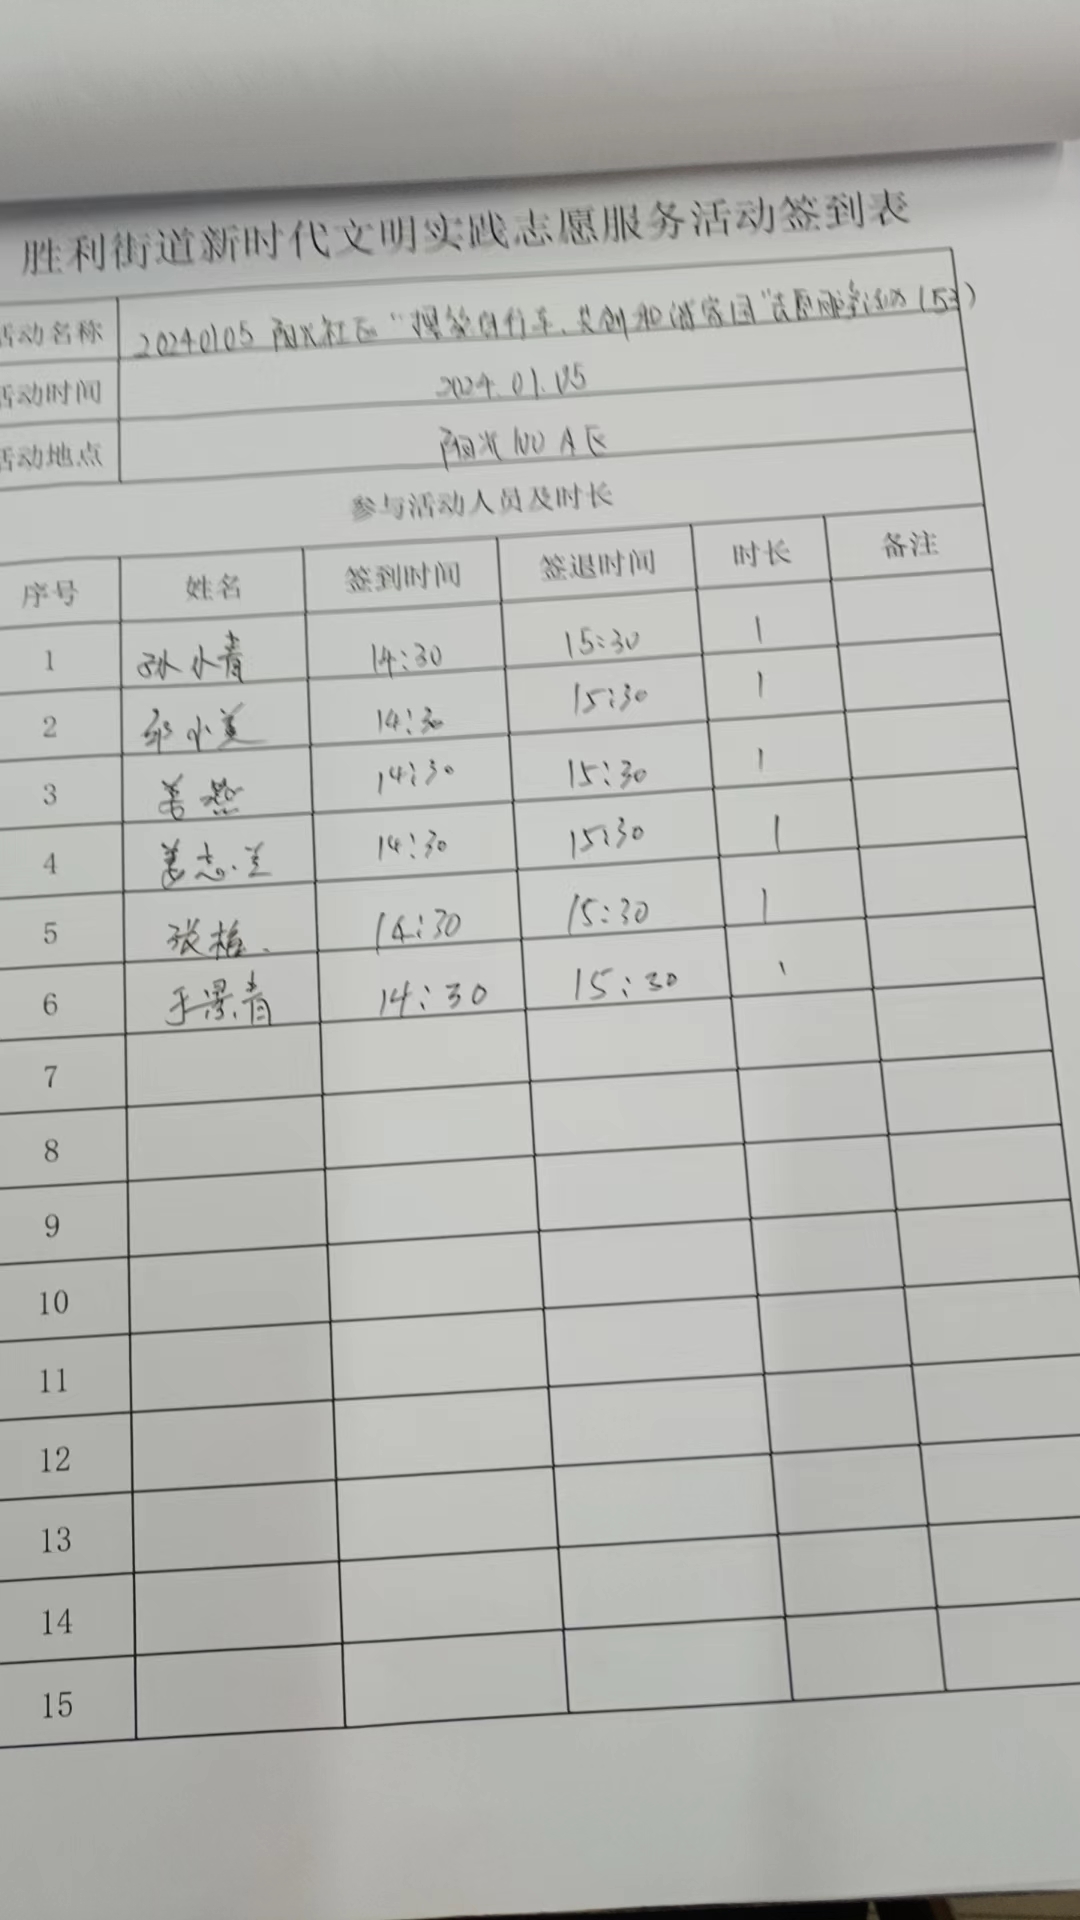 胜利街道新时代文明实践志愿服务活动签到表
活动名称 20240105 阳光社区“摆放自行车、共创和谐家园”志愿服务活动(53)
活动时间 2024.01.05
活动地点 阳光100 A区
参与活动人员及时长
序号 姓名 签到时间 签退时间 时长 备注
1 孙小青 14:30 15:30 1
2 邱小美 14:30 15:30 1
3 姜燕 14:30 15:30 1
4 姜志兰 14:30 15:30 1
5 张梅 14:30 15:30 1
6 于景青 14:30 15:30 1
7
8
9
10
11
12
13
14
15